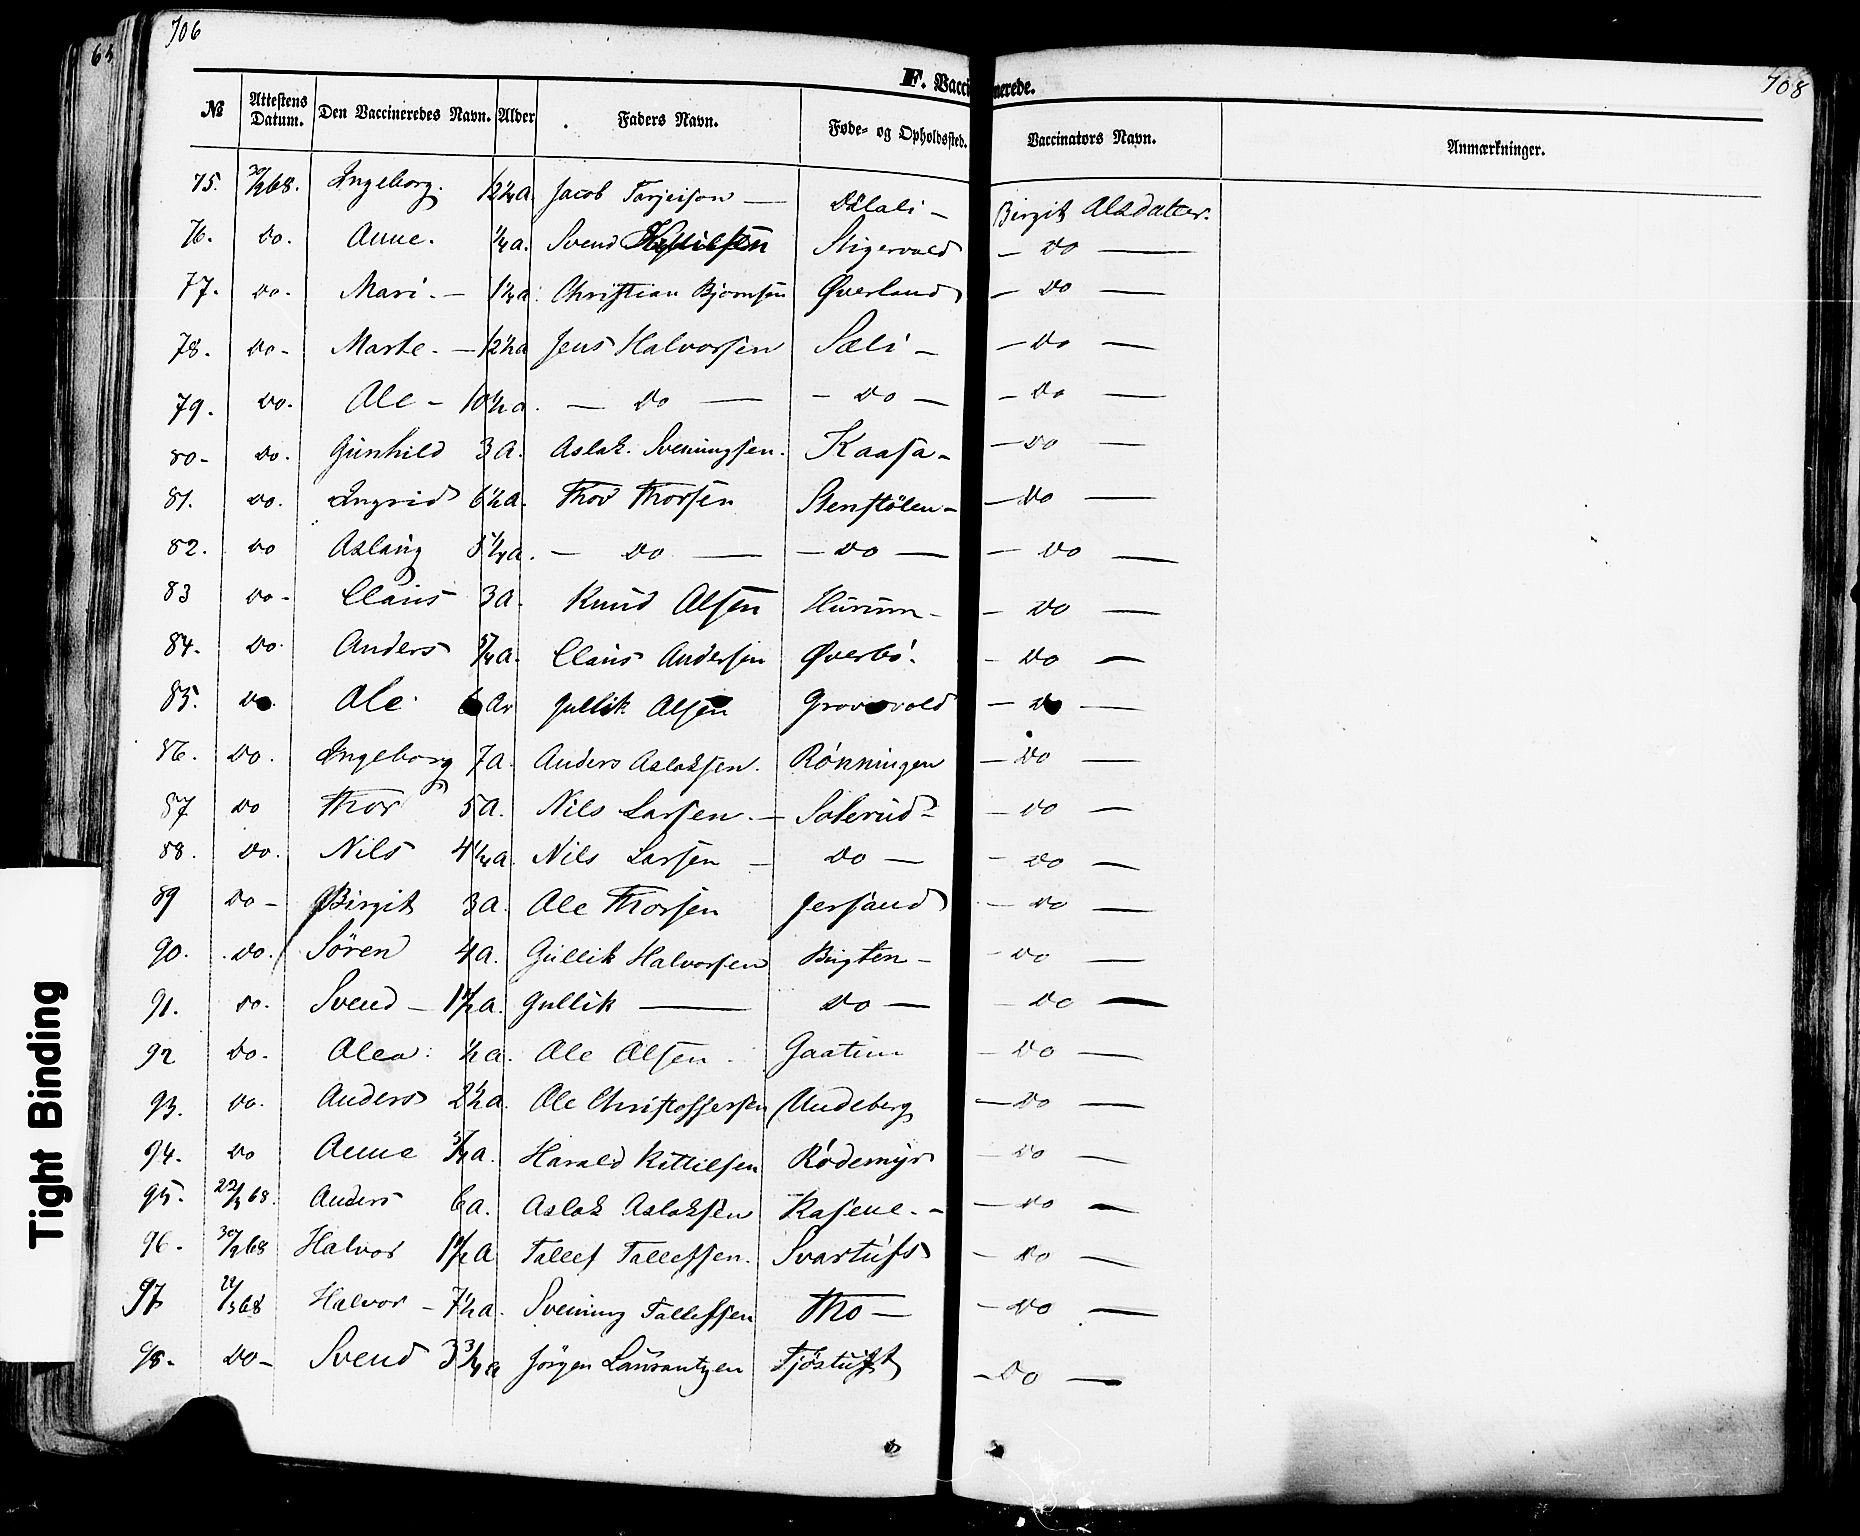 706
708
65
F. Vaccinerede.
№ Attestens Datum. Den Vaccineredes Navn. Alder Faders Navn. Føde- og Opholdssted. Vaccinators Navn. Anmærkninger.
75. 30/9 68. Ingeborg. 12¼a Jacob Tarjeison — Dålali — Birgit Alsdatter.
76. Do. Anne. ¼a. Svend Kittilsen Stigervold — Do —
77. Do. Mari. — 1¼a. Christian Bjornsen Øverland — Do —
78. Do — Marte. — 12½a Jens Halvorsen Sæli — — Do —
79. Do. Ale — 10½a. — Do — — Do — — Do —
80 — Do. Gunhild 3a. Aslak. Sveningsen. Kaasa — — Do —
81. Do. Ingrid 6½a. Thov Thorsen Stenstölen — — Do —
82. Do Aslaug 5¼a. — Do — — Do — — Do —
83 Do — Claus 3a. Knud Alsen Hurum — — Do —
84. Do. Anders 5/4a. Claus Andersen Øverbö. — Do —
85. Do. Ale 6 Ar Gullik Alsen Grovavold — Do —
86. Do. Ingeborg 7a. Anders Aslaksen. Rönningen — Do —
87 Do Thor 5a. Nils Larsen. — Solerud — — Do —
88. Do. Nils 4¼a. Nils Larsen — Do — — Do —
89 Do — Birgit 3a. Ale Thorsen Jersand — Do —
90. Do. Sören 4a. Gullik Halvorsen Bugten — — Do —
91. Do. Svend — 1½a. Gullik — Do — — Do —
92 Do. Alea ½a. Ale Alsen Gaatun — Do —
93. Do. Anders 2½a. Ole Christoffersen Undeberg — Do —
94. Do Anne ¾a. Harald Kittilsen Rödemyr — Do —
95. 22/3 68. Anders 6a. Aslak Aslaksen Rasene. — — Do —
96. 30/9 68 Halvor 1½a Tallef Tallefsen. Svartufs — Do —
97 22/3 68 Halvor — 7½a. Svening Tallefsen Tho — — Do —
98. Do — Svend 3¾a Jörgen Laurantzen Tjöstuft — Do —
Tight Binding